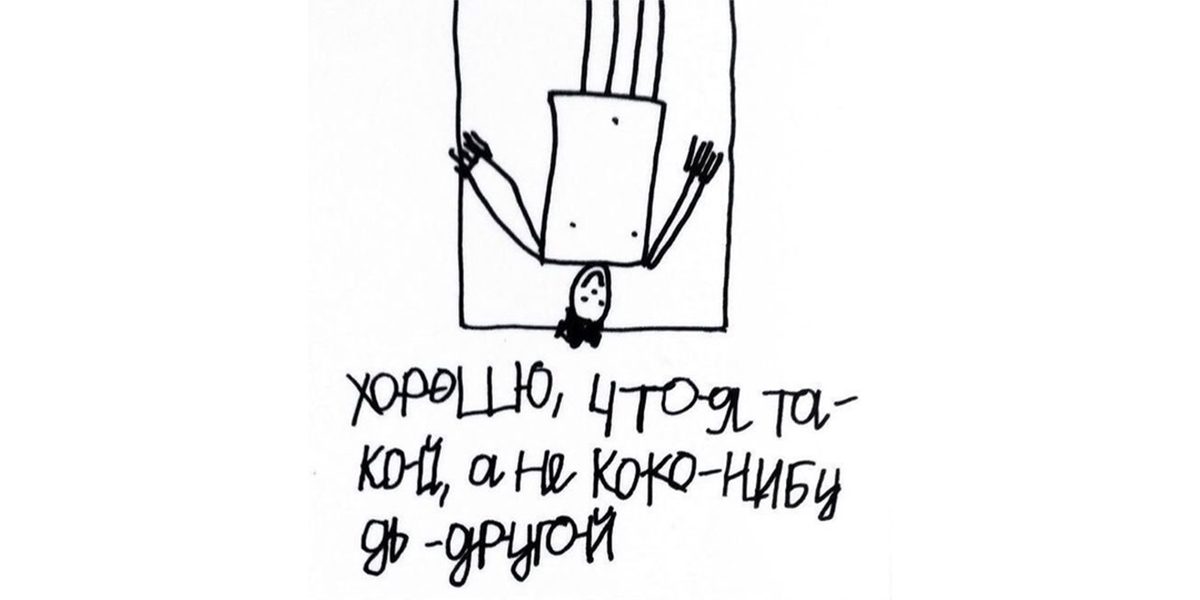 хорошо, что я та-
кой, а не коко-нибу
дь-другой